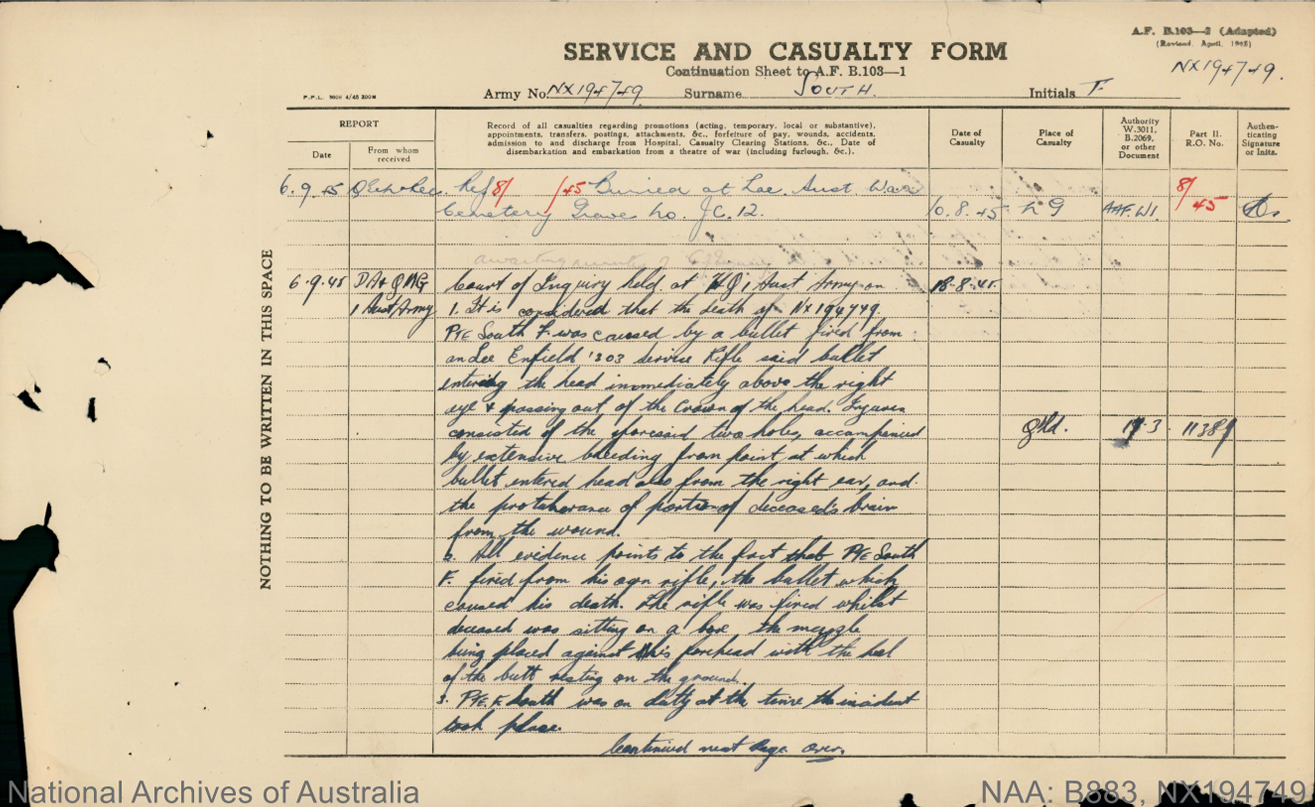 A.F. B.103—2 (Adapted)
(Revised, April, 1945)
NX194749.
SERVICE AND CASUALTY FORM
Continuation Sheet to A.F. B.103—1
Army No. NX194749 Surname SOUTH. Initials F.
REPORT
Date
From whom received
Record of all casualties regarding promotions (acting, temporary, local or substantive),
appointments, transfers, postings, attachments, &c., forfeiture of pay, wounds, accidents,
admission to and discharge from Hospital, Casualty Clearing Stations, &c., Date of
disembarkation and embarkation from a theatre of war (including furlough, &c.).
Date of Casualty
Place of Casualty
Authority W.3011, B.2069, or other Document
Part II. R.O. No.
Authenticating Signature or Inits.
6.9.45 Ref 8/ /45 Buried at Lae. Aust War 8/
Cemetery Grave No. JC.12. 10.8.45 N G 45
awaiting
6.9.45 DA & QMG Court of Inquiry held at HQ 1 Aust Army on 18.8.45.
1 Aust Army 1. It is considered that the death of NX194749
PTE South F. was caused by a bullet fired from
an Lee Enfield '303 service Rifle said bullet
entering the head immediately above the right
eye & passing out of the crown of the head. Injuries
consisted of the aforesaid two holes, accompanied Qld. 11389
by extensive bleeding from point at which
bullet entered head also from the right ear, and
the protuberance of portion of deceased's brain
from the wound.
2. All evidence points to the fact that PTE South
F. fired from his own rifle, the bullet which
caused his death. The rifle was fired whilst
deceased was sitting on a box the muzzle
being placed against his forehead with the heel
of the butt resting on the ground.
3. PTE. F. South was on duty at the time the incident
took place.
Continued next Page over.
NOTHING TO BE WRITTEN IN THIS SPACE
National Archives of Australia
NAA: B883, NX194749